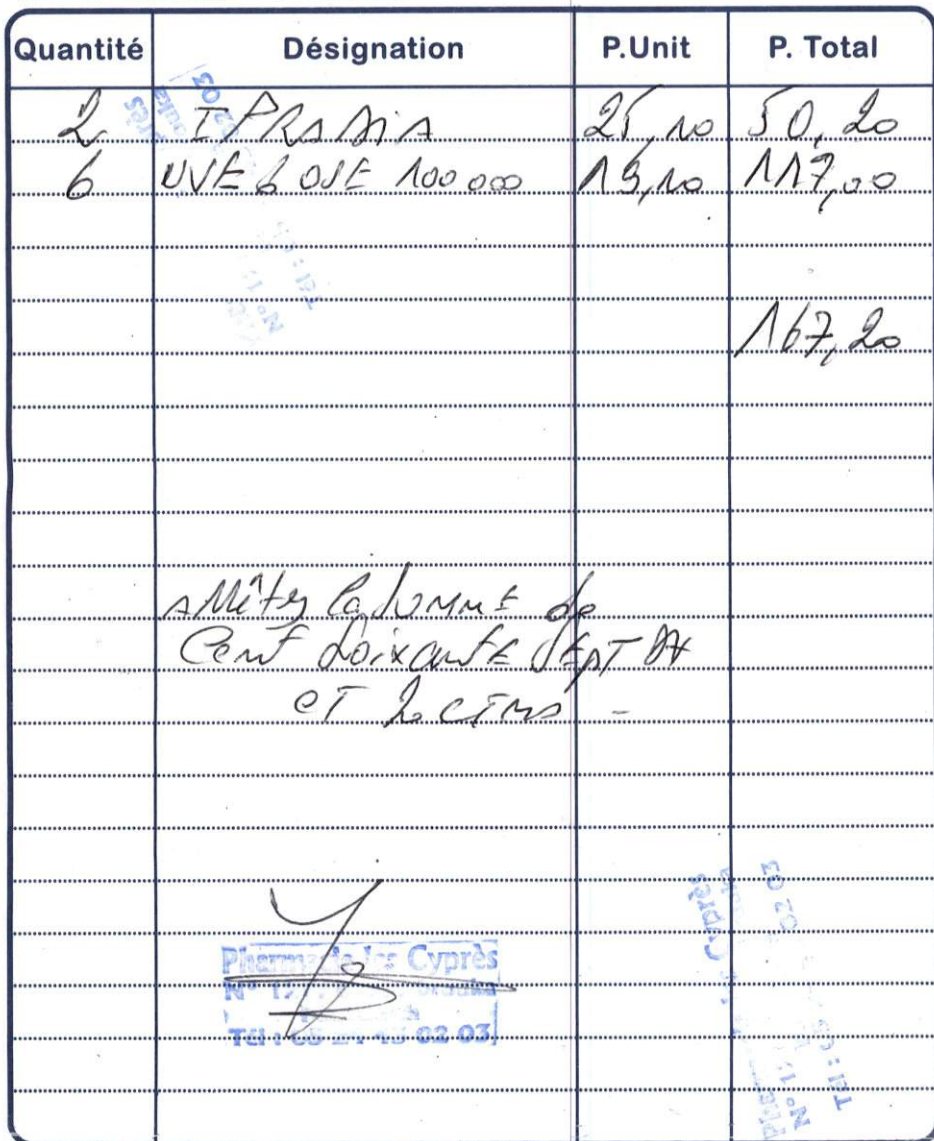 Quantité Désignation P.Unit P. Total
2 25,10 50,20
6 UVE DOSE 100 000 19,10 117,00
167,20
la somme de
Cent soixante sept DH
et 20 CTMS -
Pharmacie les Cyprès
N°
Tél : 02 03